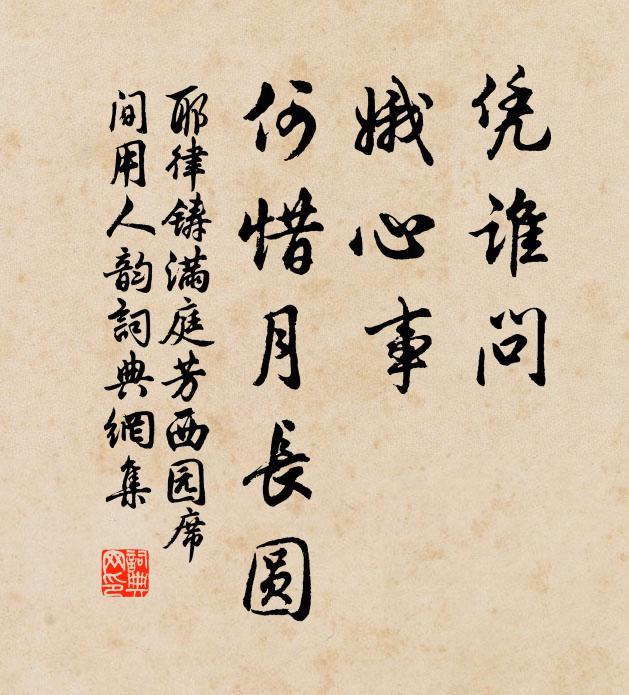 凭谁问
娥心事
何惜月长圆
耶律铸满庭芳西园席
间用人韵詞典網集
詞典
网印